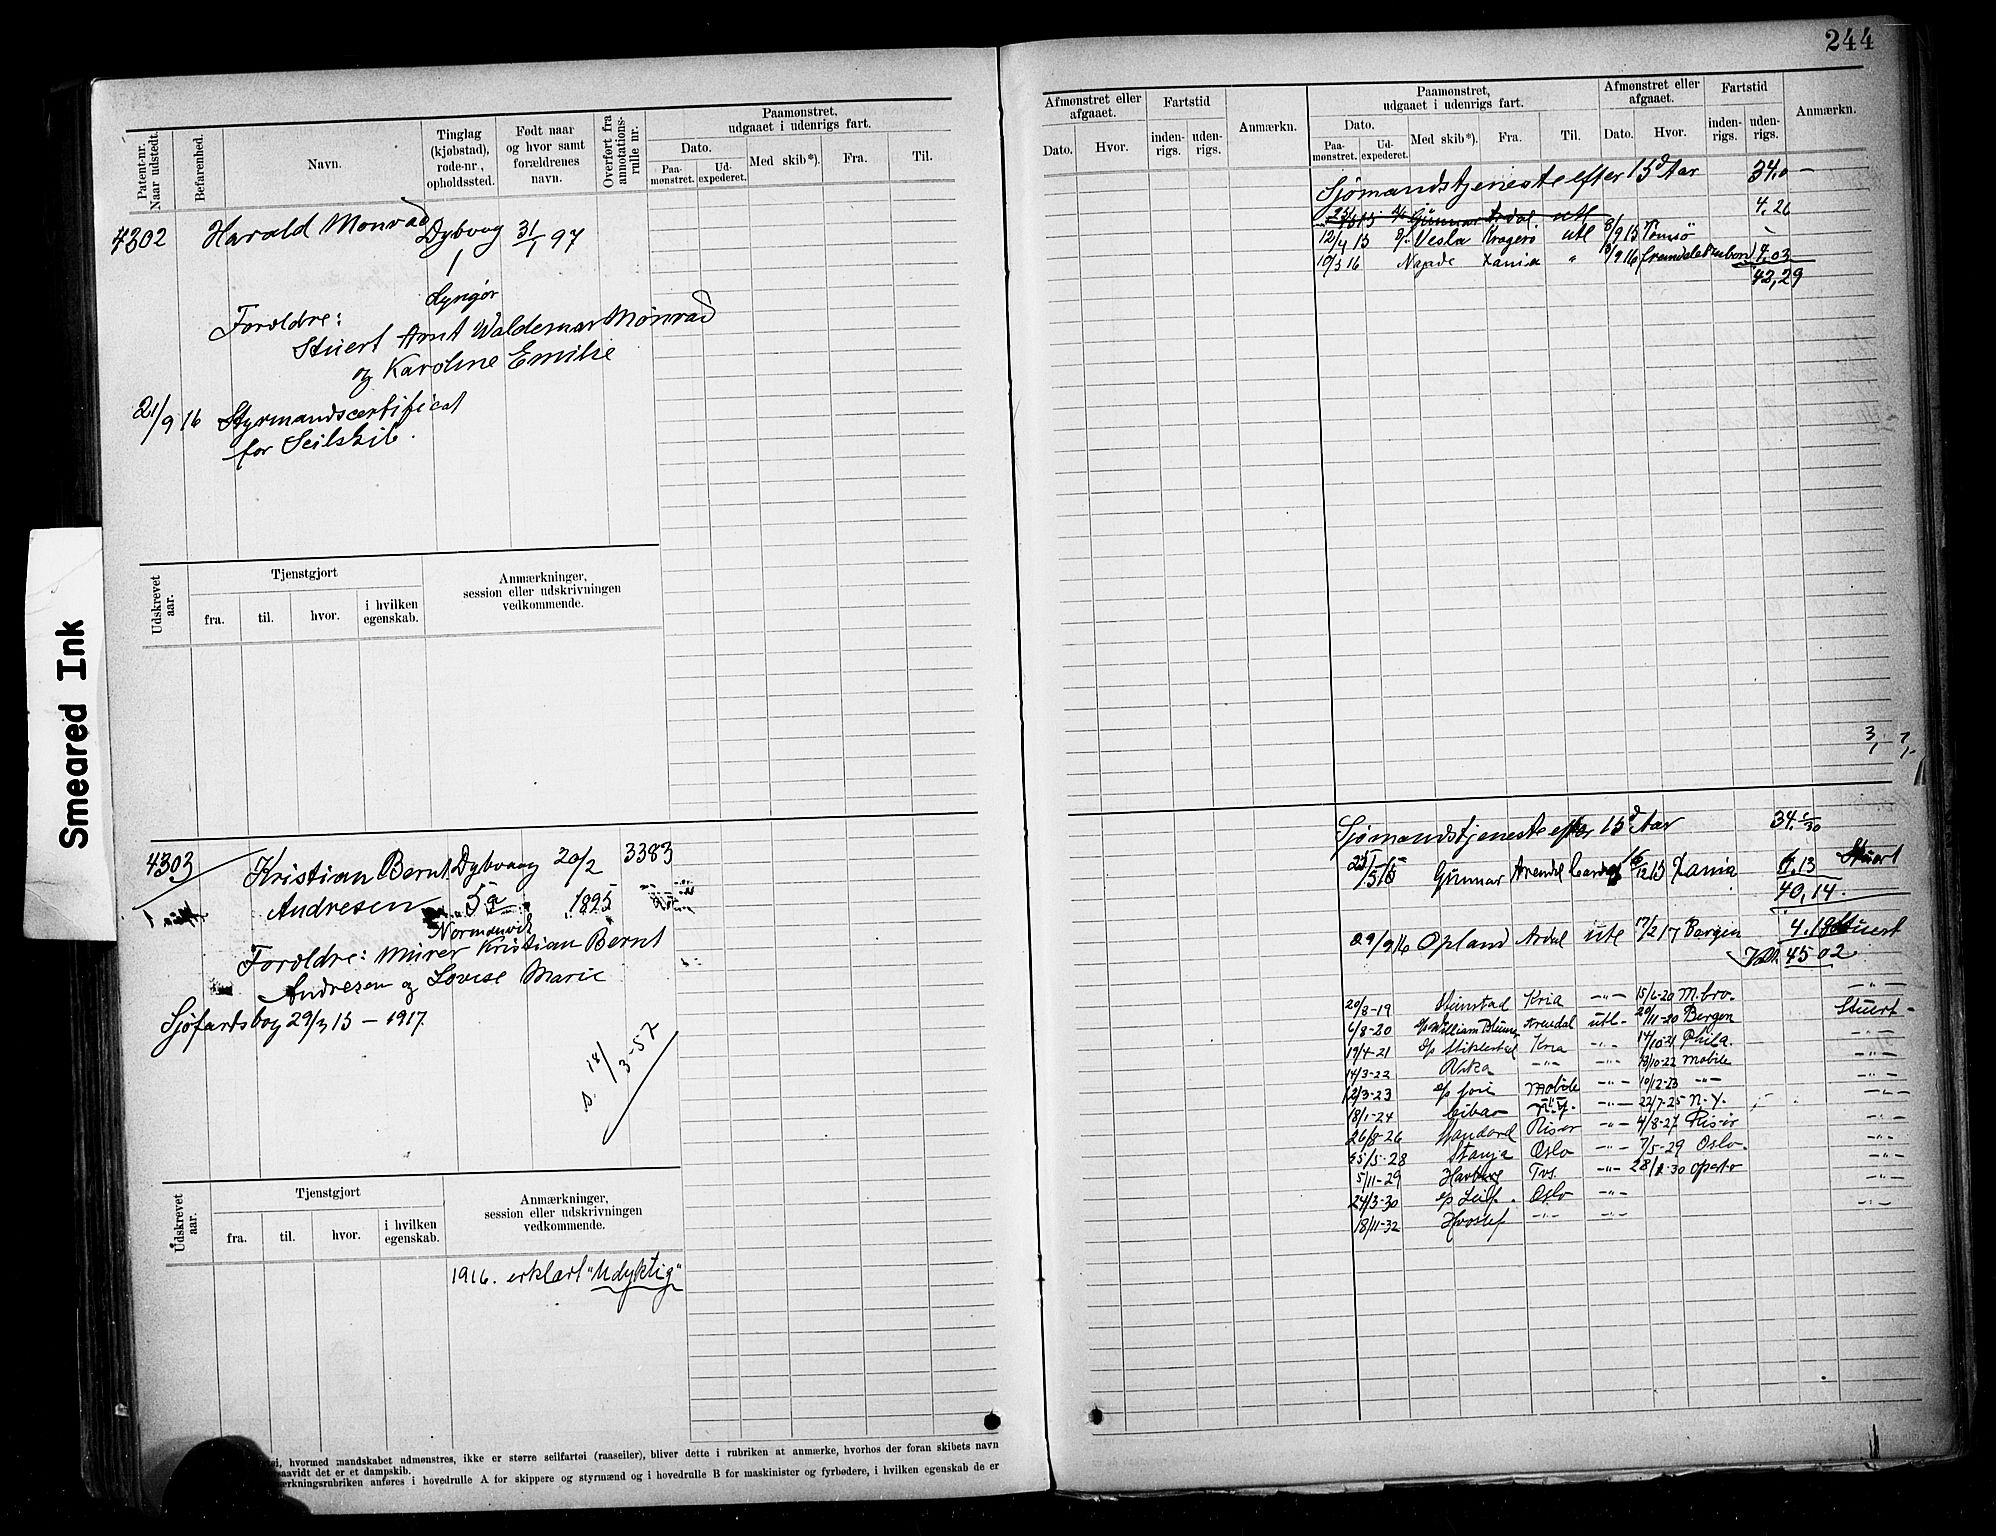 244
Patent-nr. Naar udstedt.
Befarenhed.
Navn.
Tinglag (kjøbstad), rode-nr., opholdssted.
Født naar og hvor samt forældrenes navn.
Overført fra annotations-rulle nr.
Paamønstret, udgaaet i udenrigs fart.
Dato.
Paa-mønstret.
Ud-expederet.
Med skib*).
Fra.
Til.
4302 Harald Monrad Dybvag 31/1 97
1
Lyngør
Forældre:
Stuert Arnt Waldemar Monrad
og Karoline Emilie
21/9 16 Styrmandscertificat
for Seilskib.
Udskrevet aar.
Tjenstgjort
fra. til. hvor. i hvilken egenskab.
Anmærkninger, session eller udskrivningen vedkommende.
Smeared Ink
4303 Kristian Bernt Dybvaag 20/2 3383
Andresen 52 1895
Normanvik
Forældre: Murer Kristian Bernt
Andresen og Lovise Marie
Sjøfartsbog 29/3 15 – 1917.
d. 18/3-57
Udskrevet aar.
Tjenstgjort
fra. til. hvor. i hvilken egenskab.
Anmærkninger, session eller udskrivningen vedkommende.
1916. erklært "Udyktig"
øi, hvormed mandskabet udmønstres, ikke er større seilfartøi (raaseiler), bliver dette i rubriken at anmærke, hvorhos der foran skibets navn
saavidt det er et dampskib.
ærkningsrubriken anføres i hovedrulle A for skippere og styrmænd og i hovedrulle B for maskinister og fyrbødere, i hvilken egenskab de er
Afmønstret eller afgaaet.
Dato. Hvor.
Fartstid
inden-rigs. uden-rigs.
Anmærkn.
Paamønstret, udgaaet i udenrigs fart.
Dato.
Paa-mønstret. Ud-expederet. Med skib*). Fra. Til.
Afmønstret eller afgaaet.
Dato. Hvor.
Fartstid
inden-rigs. uden-rigs.
Anmærkn.
Sjømandstjeneste efter 15d Aar 34,0 –
Gunnar Ardal utl 4.26
12/4 15 Vesla Kragerø utl 8/9 15 Tømsø
10/3 16 Najade Xania " 8/9 16 4,03
42,29
Sjømandstjeneste efter 15d Aar 34.
Gunnar Arendal Cardiff 16/12 15 Xania 6,13 Stuert
40,14.
29/9 16 Opland Ardal utl 17/2 17 Bergen 4.18 Stuert
45 02
20/8-19 Kria -"- 15/6-20 M.bro. -"-
6/8-20 William Blumer Arendal utl. 20/11-20 Bergen Stuert -
19/4-21 d/s Stiklestad Kria -"- 14/10-21 Phila. -"-
14/3-22 -"- -"- 13/10-22 Mobile -"-
12/3-23 d/s Mobile -"- 10/12-23 -"- -"-
18/1-24 Cibao N.Y. -"- 22/7-25 N.Y. -"-
26/8-26 Risør -"- 4/8-27 Risør -"-
25/5-28 Stanja Oslo -"- 7/5-29 Oslo. -"-
5/11-29 Tvs. -"- -"-
24/3-30 d/s Leif. Oslo -"- -"-
18/11-32 -"- -"-